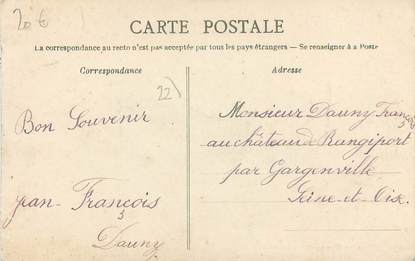 20 €
CARTE POSTALE
La correspondance au recto n'est pas acceptée par tous les pays étrangers — Se renseigner à a Poste
Correspondance
Adresse
22
Bon Souvenir
Jean-François
Dauny
Monsieur Dauny François
au château de Rangiport
par Gargenville
Seine-et-Oise.